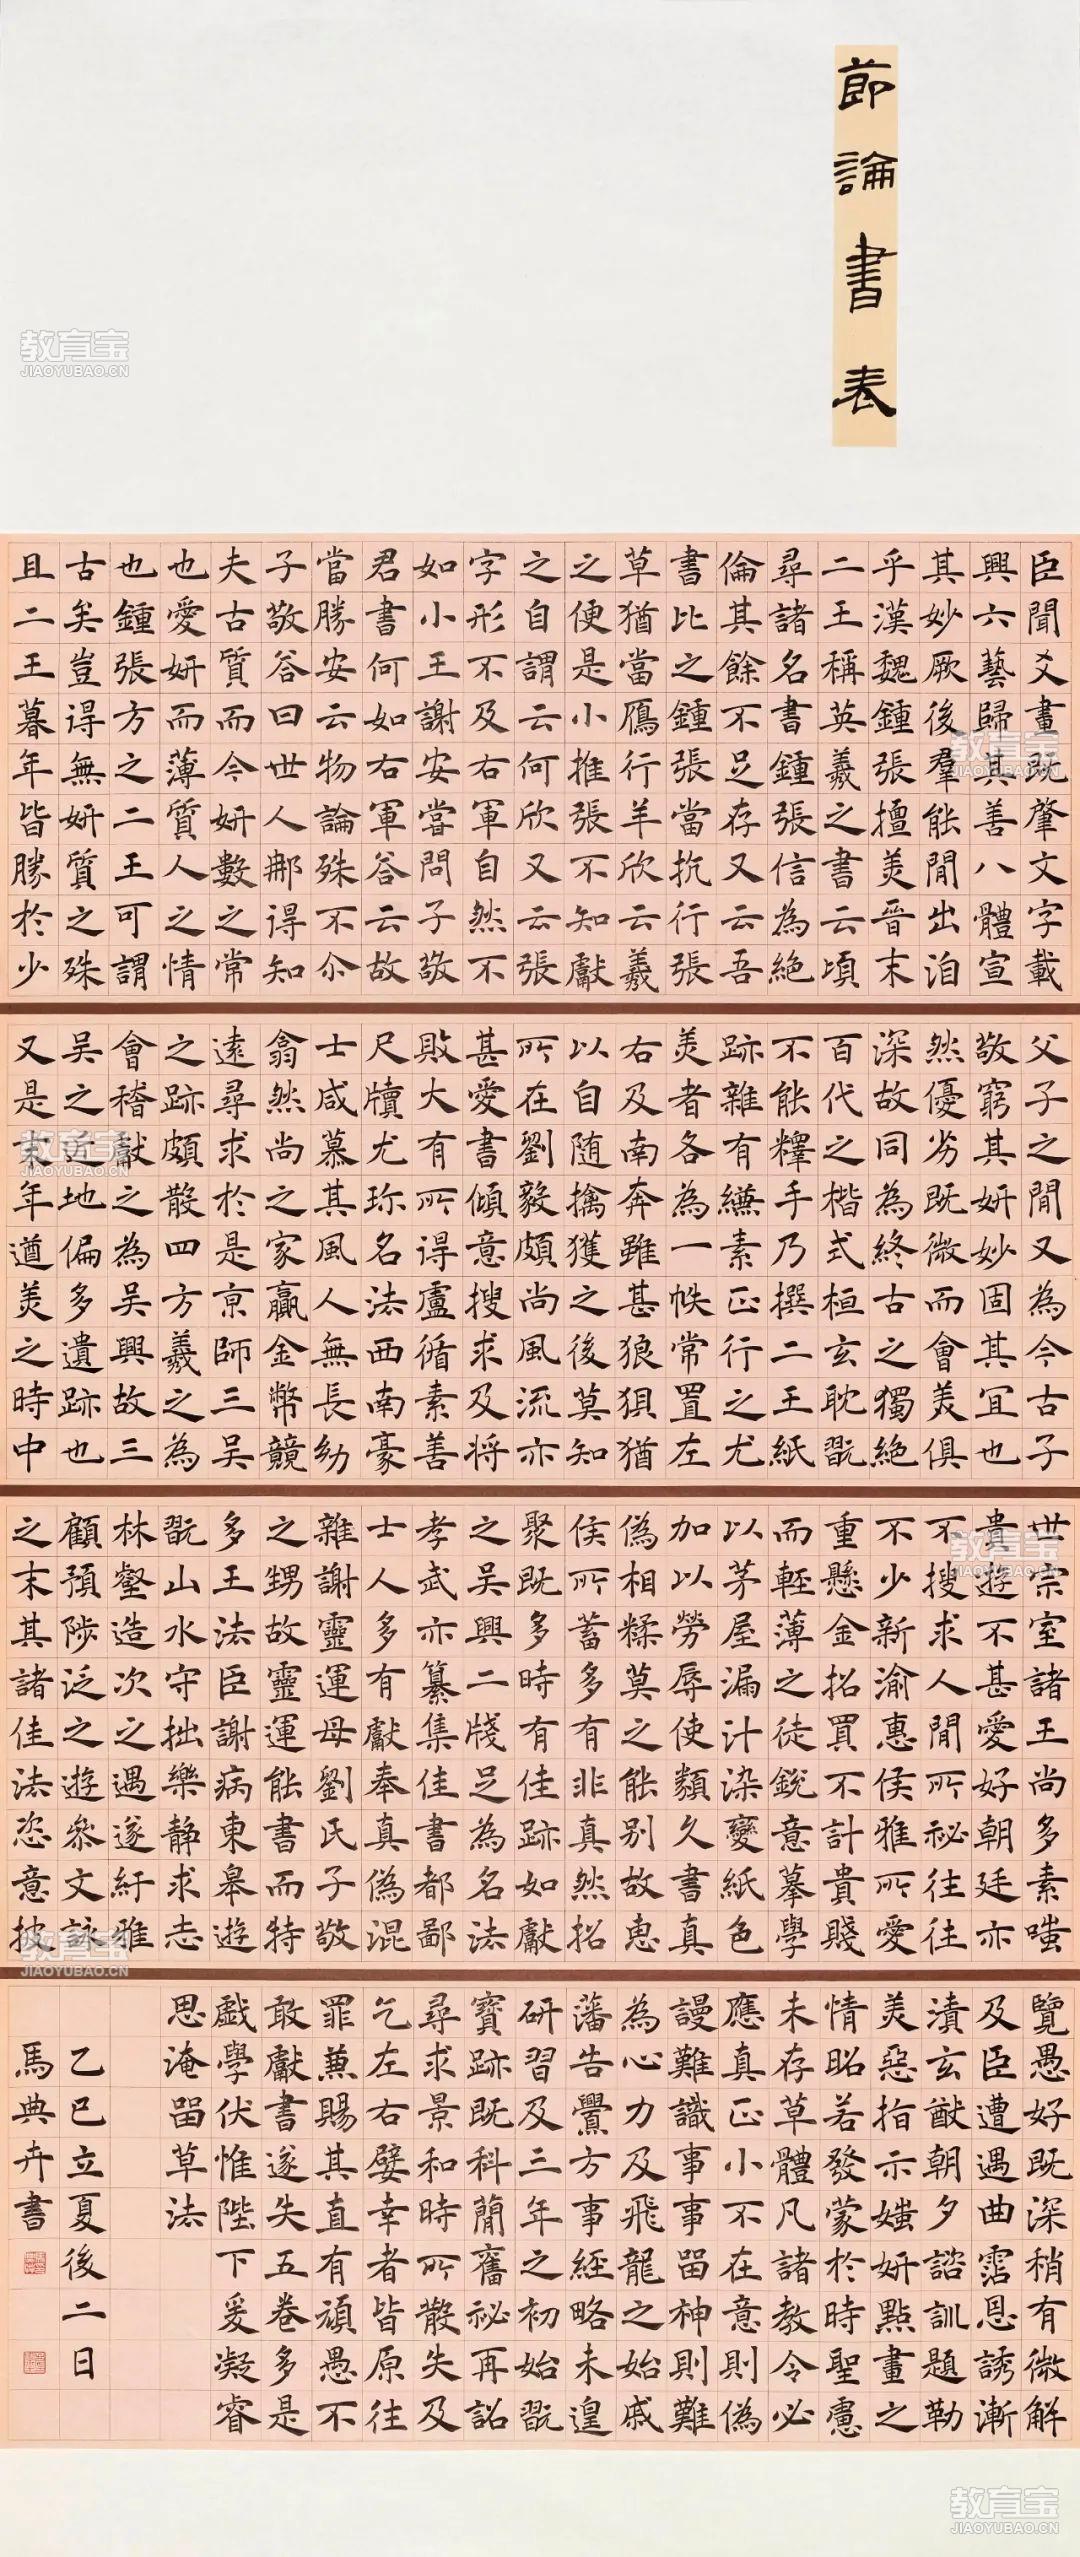 節論書表
臣聞爻畫既肇文字載
興六藝歸其善八體宣
其妙厥後羣能閒出洎
乎漢魏鍾張擅美晉末
二王稱英羲之書云頃
尋諸名書鍾張信為絕
倫其餘不足存又云吾
書比之鍾張當抗行張
草猶當鴈行羊欣云羲
之便是小推張不知獻
之自謂云何欣又云張
字形不及右軍自然不
如小王謝安嘗問子敬
君書何如右軍答云故
當勝安云物論殊不尒
子敬答曰世人那得知
夫古質而今妍數之常
也愛妍而薄質人之情
也鍾張方之二王可謂
古矣豈得無妍質之殊
且二王暮年皆勝於少
父子之閒又為今古子
敬窮其妍妙固其宜也
然優劣既微而會美俱
深故同為終古之獨絕
百代之楷式桓玄耽翫
不能釋手乃撰二王紙
跡雜有縑素正行之尤
美者各為一帙常置左
右及南奔雖甚狼狽猶
以自随擒獲之後莫知
所在劉毅頗尚風流亦
甚愛書傾意搜求及将
敗大有所得盧循素善
尺牘尤珎名法西南豪
士咸慕其風人無長幼
翕然尚之家贏金幣競
遠尋求於是京師三吳
之跡頗散四方羲之為
會稽獻之為吳興故三
吳之近地偏多遺跡也
又是末年遒美之時中
世宗室諸王尚多素嗤
貴遊不甚愛好朝廷亦
不搜求人閒所祕往往
不少新渝惠侯雅所愛
重懸金招買不計貴賤
而輕薄之徒銳意摹學
以茅屋漏汁染變紙色
加以勞辱使類久書真
偽相糅莫之能别故惠
侯所蓄多有非真然招
聚既多時有佳跡如獻
之吳興二牋足為名法
孝武亦纂集佳書都鄙
士人多有獻奉真偽混
雜謝靈運母劉氏子敬
之甥故靈運能書而特
多王法臣謝病東皋遊
翫山水守拙樂靜求志
林壑造次之遇遂紆雅
顧預陟泛之遊叅文詠
之末其諸佳法恣意披
覽愚好既深稍有微解
及臣遭遇曲霑恩誘漸
漬玄猷朝夕諮訓題勒
美惡指示媸妍點畫之
情昭若發蒙於時聖慮
未存草體凡諸教令必
應真正小不在意則偽
謾難識事事留神則難
為心力及飛龍之始戚
藩告釁方事經略未遑
研習及三年之初始翫
寶跡既科簡舊祕再詔
尋求景和時所散失及
乞左右嬖幸者皆原往
罪兼賜其直有頑愚不
敢獻書遂失五卷多是
戲學伏惟陛下爰凝睿
思淹留草法
乙巳立夏後二日
馬典卉書
教育宝
JIAOYUBAO.CN
教育宝
JIAOYUBAO.CN
教育宝
JIAOYUBAO.CN
教育宝
JIAOYUBAO.CN
教育宝
JIAOYUBAO.CN
教育宝
JIAOYUBAO.CN